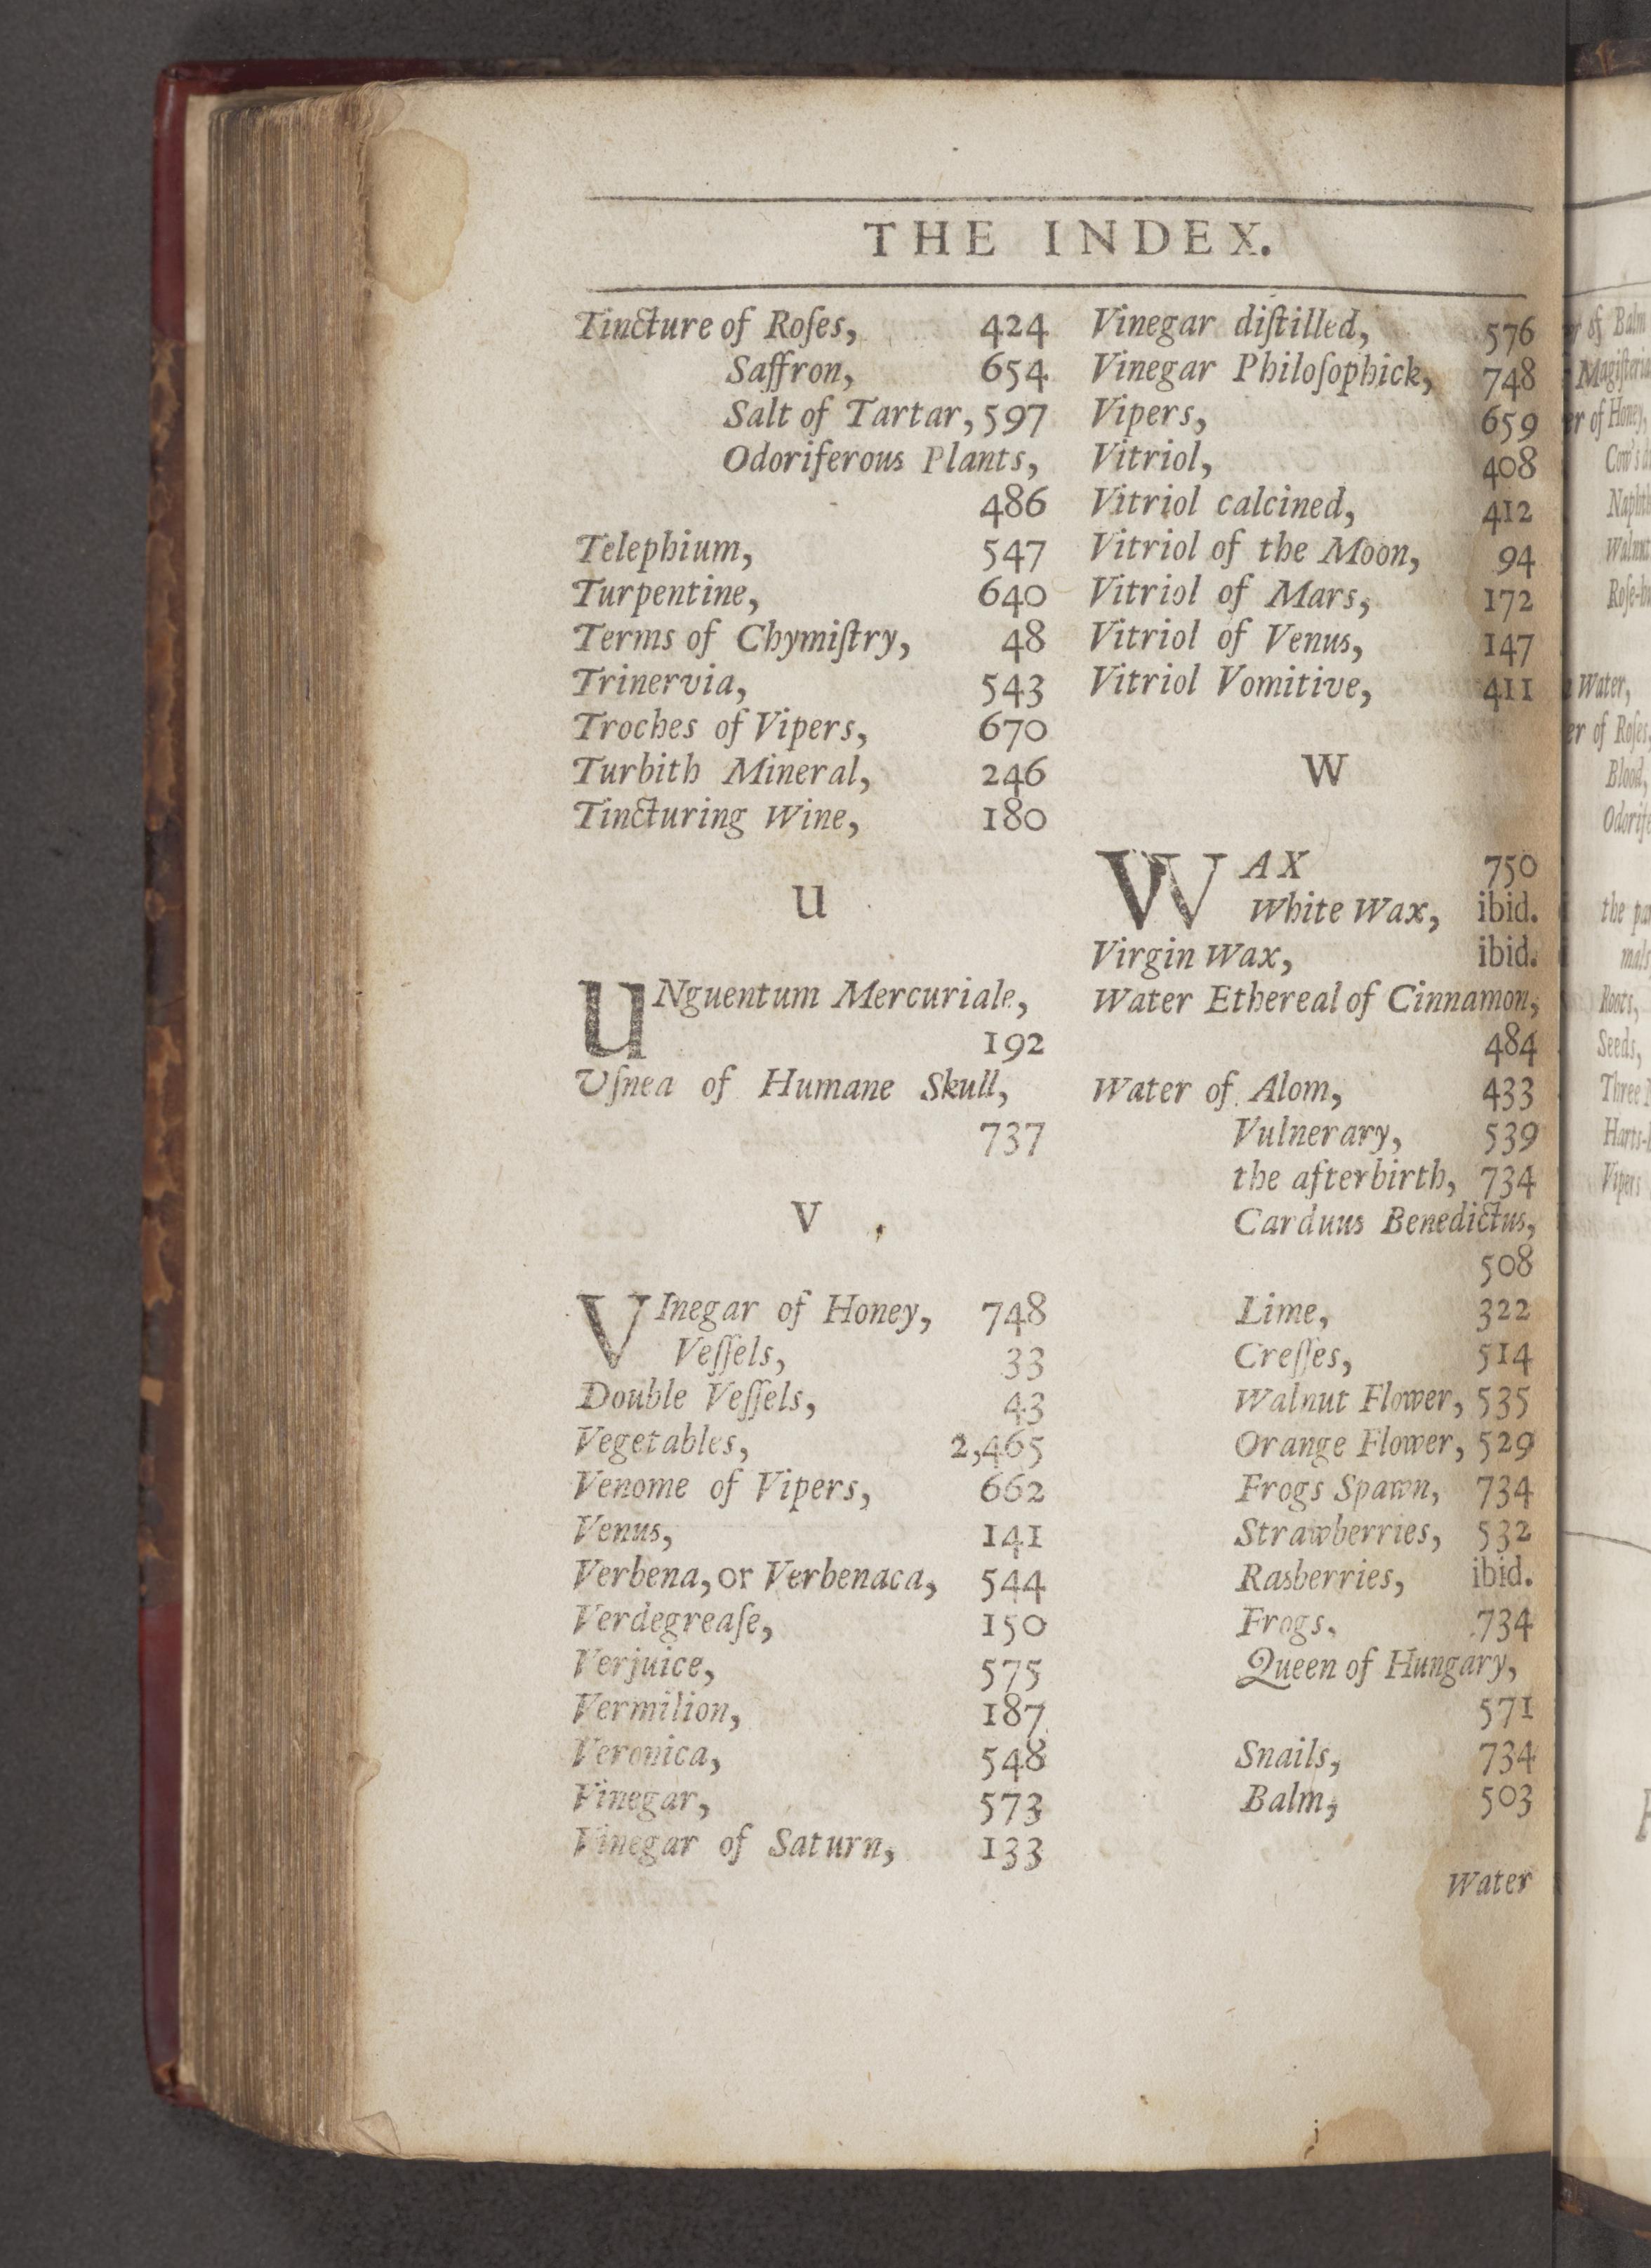 THE INDEX.
Tincture of Roſes, 424
Saffron, 654
Salt of Tartar, 597
Odoriferous Plants,
486
Telephium, 547
Turpentine, 640
Terms of Chymiſtry, 48
Trinervia, 543
Troches of Vipers, 670
Turbith Mineral, 246
Tincturing Wine, 180
U
UNguentum Mercuriale,
192
Uſnea of Humane Skull,
737
V
VInegar of Honey, 748
Veſſels, 33
Double Veſſels, 43
Vegetables, 2,465
Venome of Vipers, 662
Venus, 141
Verbena, or Verbenaca, 544
Verdegreaſe, 150
Verjuice, 575
Vermilion, 187
Veronica, 548
Vinegar, 573
Vinegar of Saturn, 133
Vinegar diſtilled, 576
Vinegar Philoſophick, 748
Vipers, 659
Vitriol, 408
Vitriol calcined, 412
Vitriol of the Moon, 94
Vitriol of Mars, 172
Vitriol of Venus, 147
Vitriol Vomitive, 411
W
WAX 750
White Wax, ibid.
Virgin Wax, ibid.
Water Ethereal of Cinnamon,
484
Water of Alom, 433
Vulnerary, 539
the afterbirth, 734
Carduus Benedictus,
508
Lime, 322
Creſſes, 514
Walnut Flower, 535
Orange Flower, 529
Frogs Spawn, 734
Strawberries, 532
Rasberries, ibid.
Frogs, 734
Queen of Hungary,
571
Snails, 734
Balm, 503
Water
of Balm
Magiſteria
of Honey,
Cow's
Walnut
Water,
of Roſes,
Blood,
the
Roots,
Seeds,
Three
Vipers